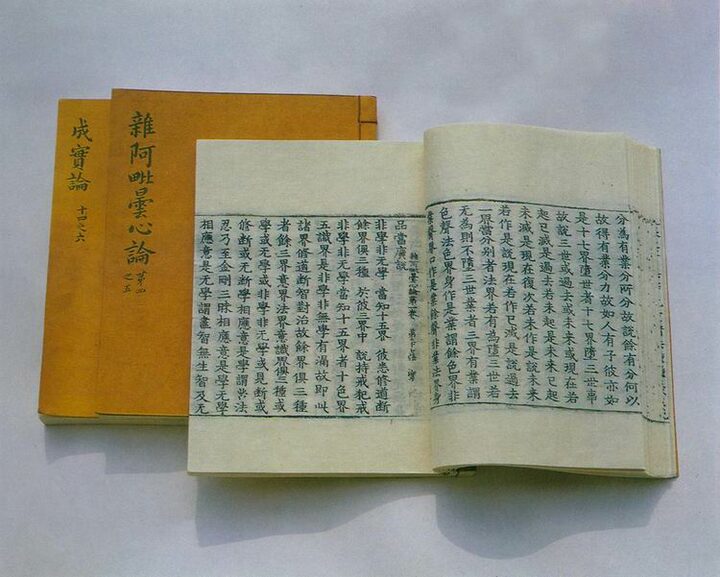 成實論
十四之六
雜阿毗曇心論
第四
之五
分為有業分所分故說餘有分何以
故得有業分力故如人有子彼亦如
是十七界墮世者十七界墮三世事
故說三世或過去或未來或現在若
起已滅是過去若未起是未來已起
未滅是現在復次若未作是說未來
若作是說現在若作已滅是說過去
一界當分別者法界若有為墮三世若
無為則不墮三世業者三界有業謂
色聲法色界身作是業謂餘色界非
業聲界口作是業餘聲非業法界身
品當廣說
非學非無學 當知十五界 彼悉修道斷
餘界俱三種 於彼三界中 說持戒犯戒
非學非無學當知十五界者十色界
五識界是非學非無學有漏故即此
諸界修道斷智對治故餘界俱三種
者餘三界意界法界意識界俱三種或
學或無學或非學非無學或見斷或
修斷或无斷學相應意是學謂苦法
忍乃至金剛三昧相應意是學無學
相應意是無學謂盡智無生智及无